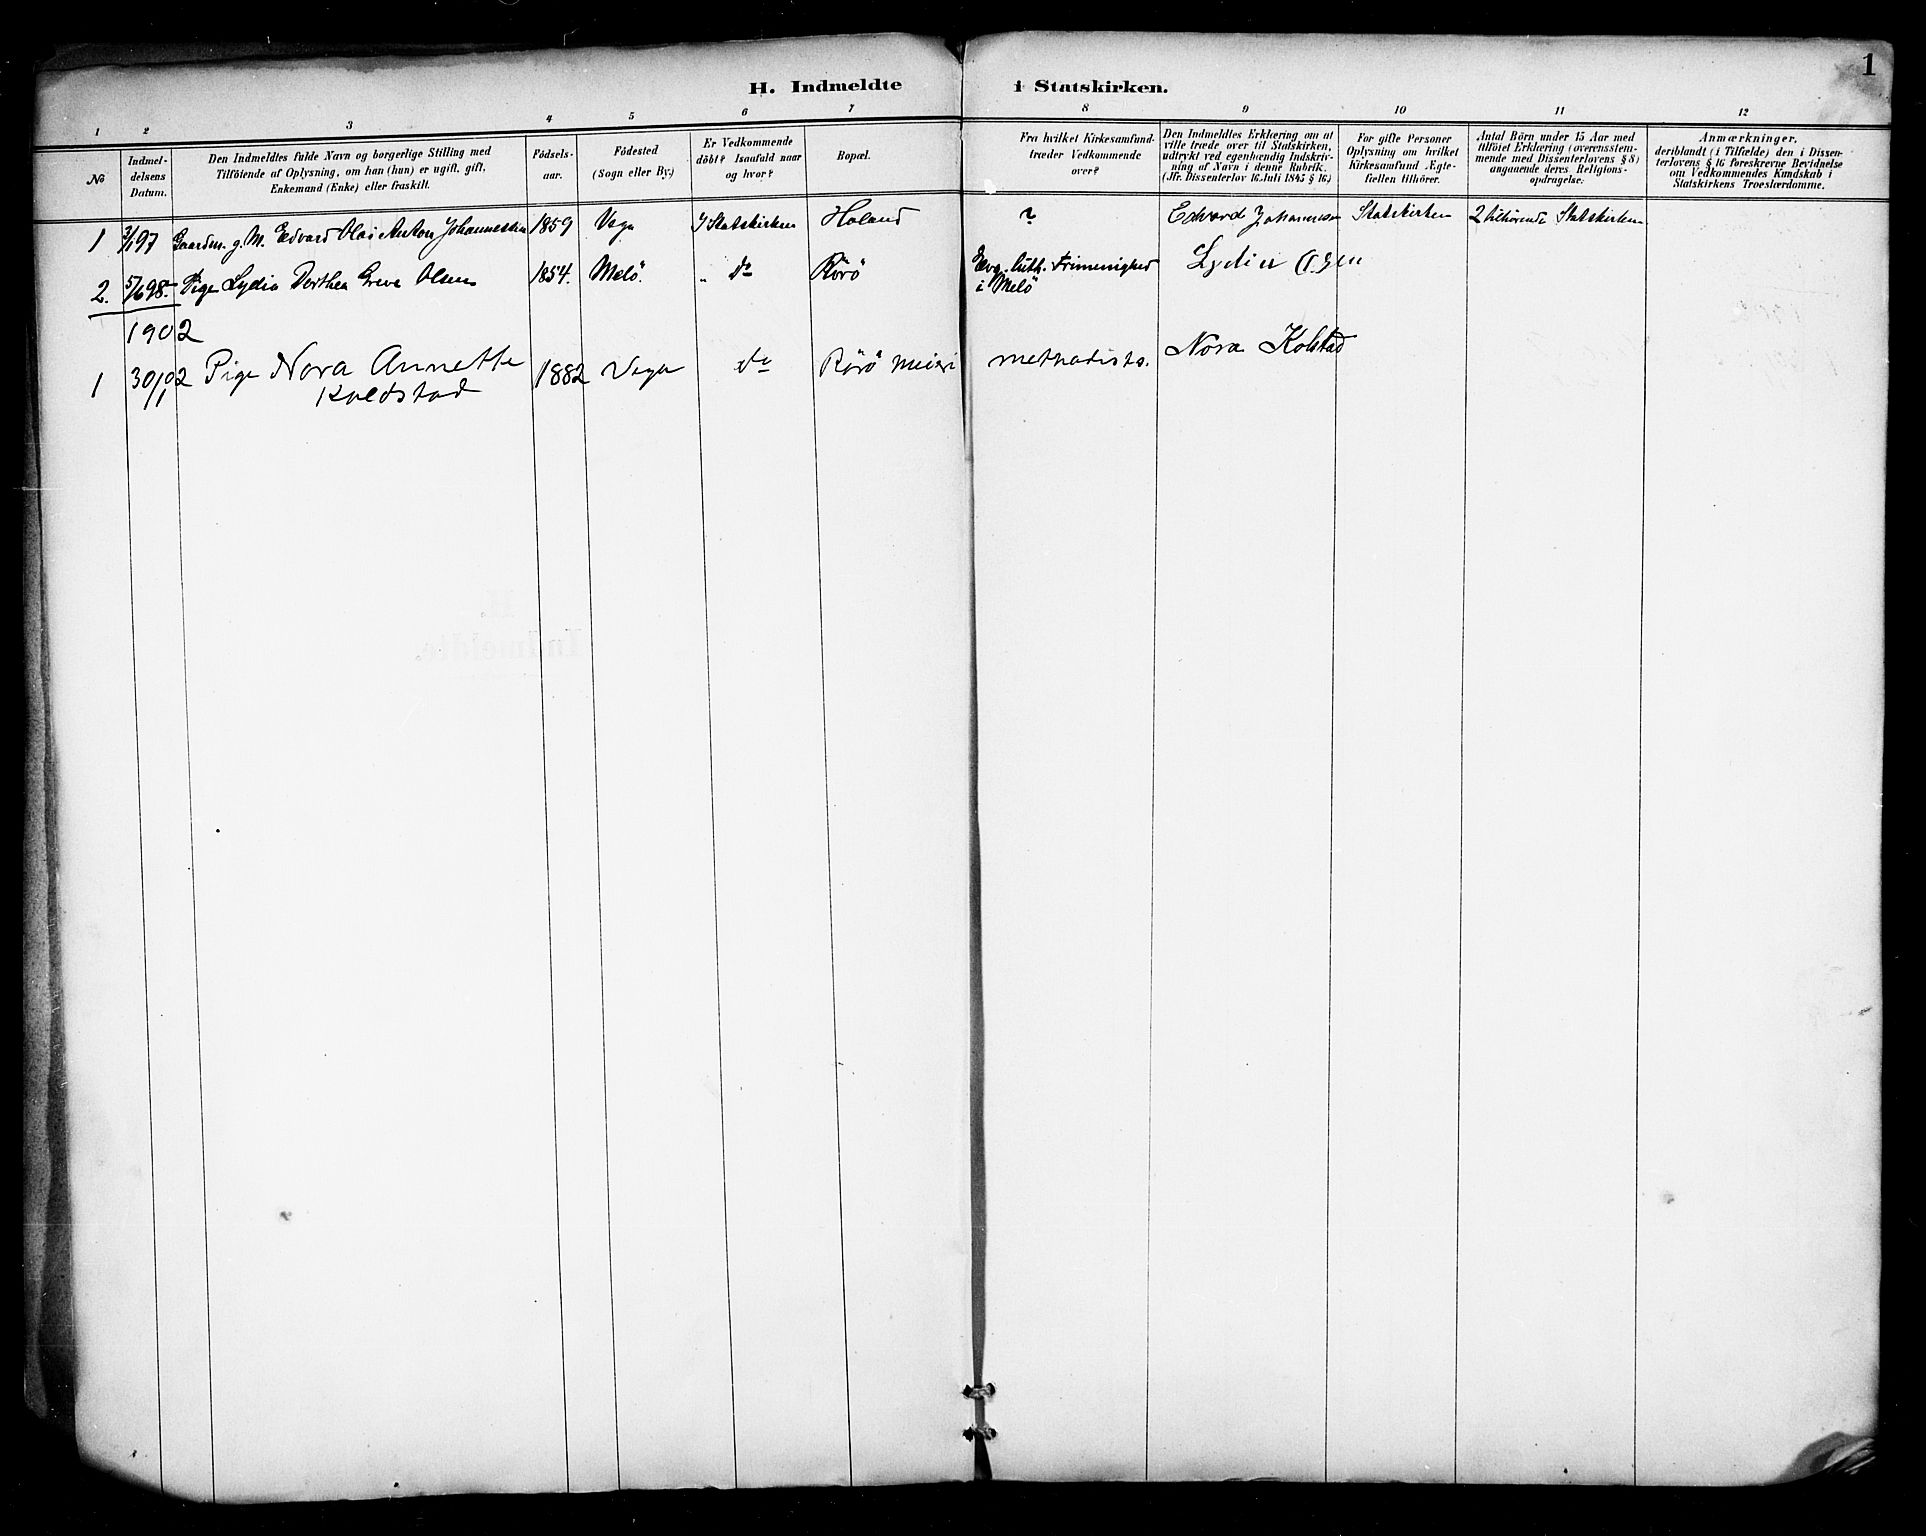 1
H. Indmeldte i Statskirken.
1 2 3 4 5 6 7 8 9 10 11 12
No
Indmel-
delsens
Datum.
Den Indmeldtes fulde Navn og borgerlige Stilling med
Tilföiende af Oplysning, om han (hun) er ugift, gift,
Enkemand (Enke) eller fraskilt.
Födsels-
aar.
Födested
(Sogn eller By.)
Er Vedkommende
döbt? Isaafald naar
og hvor?
Bopæl.
Fra hvilket Kirkesamfund
træder Vedkommende
over?
Den Indmeldtes Erklæring om at
ville træde over til Statskirken,
udtrykt ved egenhændig Indskriv-
ning af Navn i denne Rubrik.
(Jfr. Dissenterlov 16. Juli 1845 § 16.)
For gifte Personer
Oplysning om hvilket
Kirkesamfund Ægte-
fællen tilhörer.
Antal Börn under 15 Aar med
tilföiet Erklæring (overensstem-
mende med Dissenterlovens § 8)
angaaende deres Religions-
opdragelse.
Anmærkninger,
deriblandt (i Tilfælde) den i Dissen-
terlovens § 16 foreskrevne Bevidnelse
om Vedkommendes Kundskab i
Statskirkens Troeslærdomme.
1 3/1 97 Gaardm. g. M. Edvard Olai Anton Johannessen 1859 Vega I Statskirken Holand ? Edvard Johannesen Statskirken 2 tilhörende Statskirken
2. 5/6 98. Pige Lydia Dorthea Greve Olsen 1854. Melö. " do Rörö Evg. luth. Frimenighed
i Melö
Lydia Olsen
1902
1 30/11 02 Pige Nora Annette 1882 Vega do Rörö Meieri methodists. Nora Kolstad
Koldstad
H.
Indmeldte.